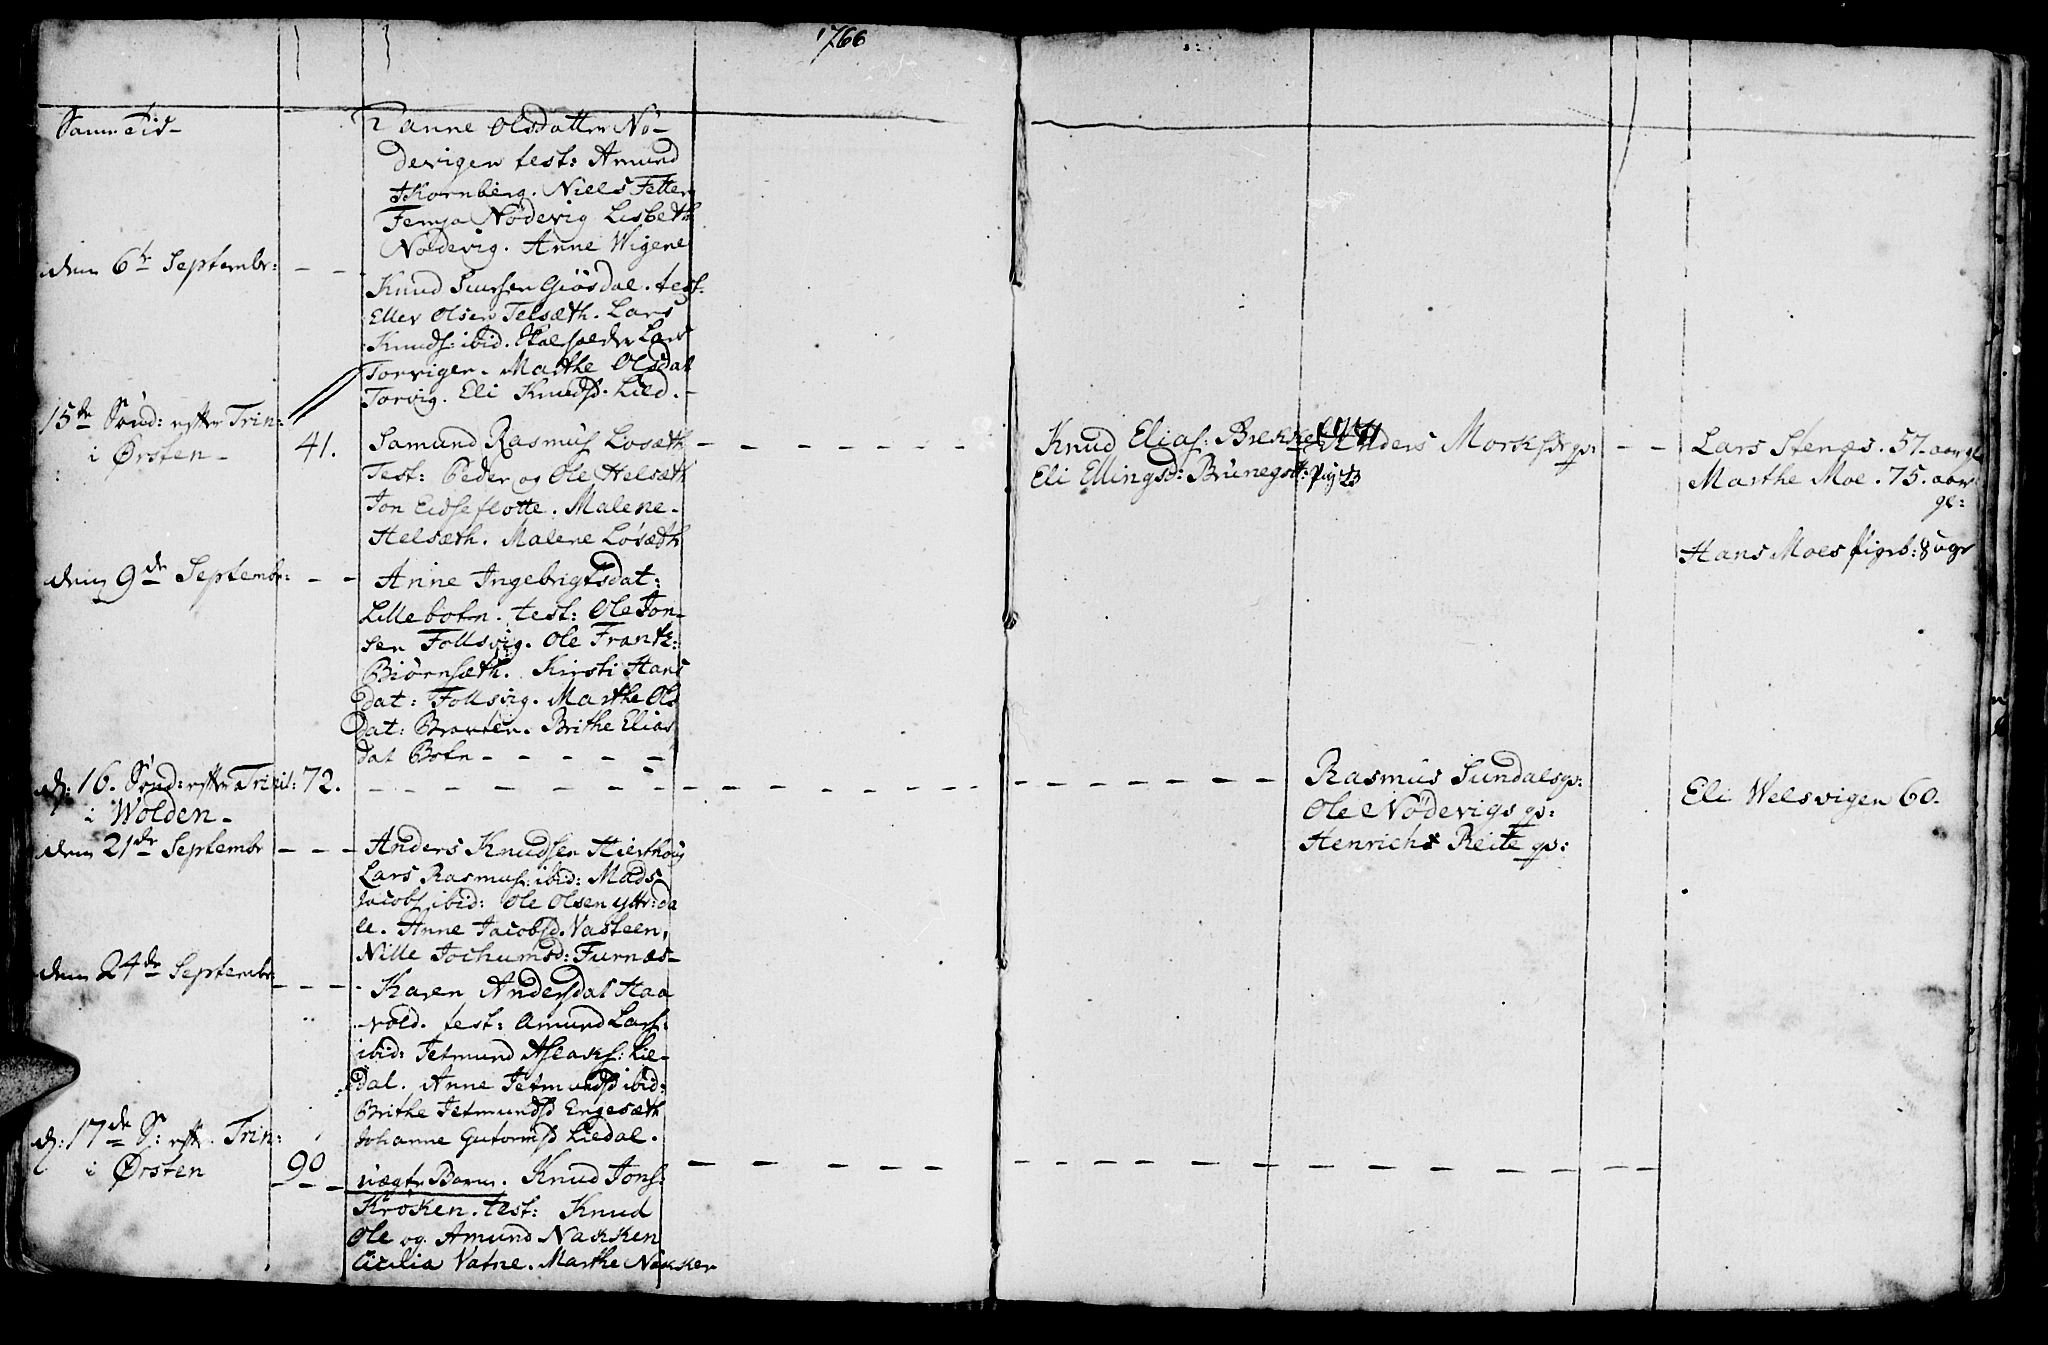 1766
Same Tid-
Hanne Olsdatter Nö-
devigen test: Amund
Skornberg. Niels Fetter
Femja Nödevig Lisbeth
Nödevig. Anne Wigene
den 6te Septembr: - - -
Knud Siursen Giösdal. test:
Eller Olsen Telsæth. Lars
Knuds: ibid. Lars
Torvigen. Marthe Olsdat
Torvig. Eli Knudsd. Lied.-
15de Sönd: efter Trin:
i Ørsten- 41.
Samund Rasmus Losæth - - - - - -
Test: Peder og Ole Helsæth
Jon Eidseflotte. Malene-
Helsæth. Malene Løsæth
Knud Elias: Brekke
Eli Ellingsd: Brunegst: pig: 23
Anders Morks gs: - -
Lars Stenæs. 57 aar gl
Marthe Moe. 75. aar
gl:
Hans Moes pigeb: 8 uger
den 9de Septembr: - -
Anne Ingebrigtsdat:
Lillebotn. test: Ole Jon-
sen Follsvig. Ole Frantz:
Biörnsæth. Kirsti Hans
dat: Follsvig. Marthe Ols
dat: Brauten. Brithe Elias
dat Botn - - - - -
d: 16. Sönd: efter Trinit: 72. - - - - - -
i Wolden-
Rasmus Sundals gs:
Ole Nödevigs gs:
Henrichs Reite gs:
Eli Welsvigen 60-
den 21de Septembr - - -
Anders Knudsen Hierthoug
Lars Rasmus: ibid: Mads
Jacobs ibid: Ole Olsen yttr:da
le. Anne Jacobsd. Vasteen,
Nille Jochumsd: Furnæs-
den 24de Septembr: - - -
Karen Andersdat Haa
vold. test: Amund Lars:
ibid: Jetmund Aslaks: Lie-
dal. Anne Jetmundsd ibid:
Brithe Jetmundsd Engesæth
Johanne Gutormsd Liedal.
d: 17de S: eft. Trin:
i Ørsten 90 - - - - - -
uægte Barn. Knud Jons:
Kröken. test: Knud
Ole og Amund Nakken
Cicilia Vatne. Marthe Nakken